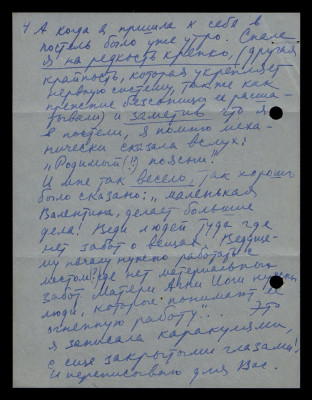 4 А когда я пришла к себе в
постель было уже утро. Спала
я на редкость крепко, (другая
крайность, которая укрепляет
нервную систему, так же как
прежние бессонницы ее
) и заметив что я
в постели, я помню меха-
нически сказала вслух:
„Родимый (!) поясни!"
И мне так весело, так хорошо
было сказано: „маленькая
Валентина, делает большие
дела! Веди людей туда где
нет забот о вещах! Ведуще-
му началу нужено работать с
местом где нет материальных
забот. Матери Агни Йоги нужны
люди, которые понимают Её
огненную работу"... Это
я записала каракулями,
с еще закрытыми глазами!
и переписываю для Вас.